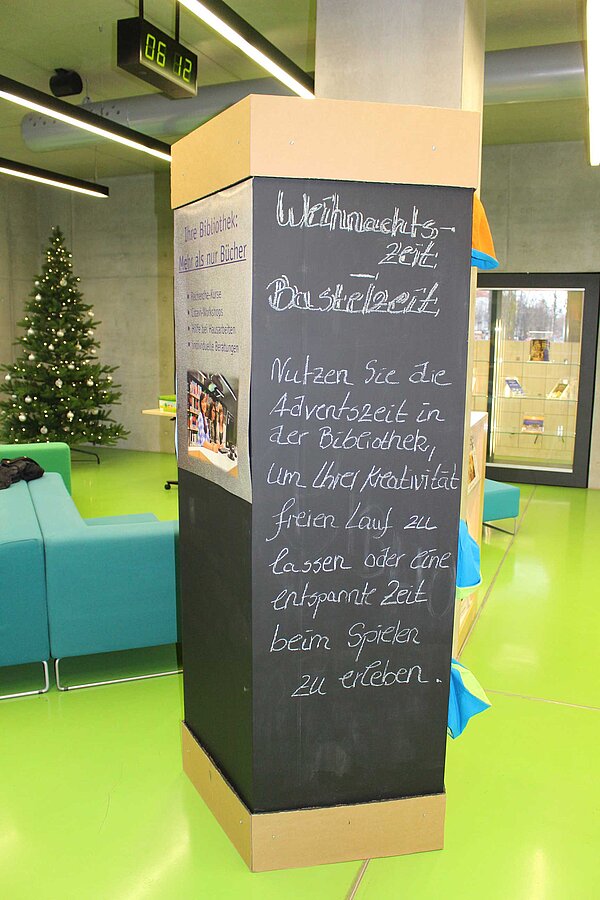 06 12
Ihre Bibliothek:
Mehr als nur Bücher
Recherche-Kurse
Citavi-Workshops
Hilfe bei Hausarbeiten
Individuelle Beratungen
Weihnachts-
zeit
–
Bastelzeit
Nutzen Sie die
Adventszeit in
der Bibliothek,
um Ihrer Kreativität
freien Lauf zu
lassen oder eine
entspannte Zeit
beim Spielen
zu erleben.